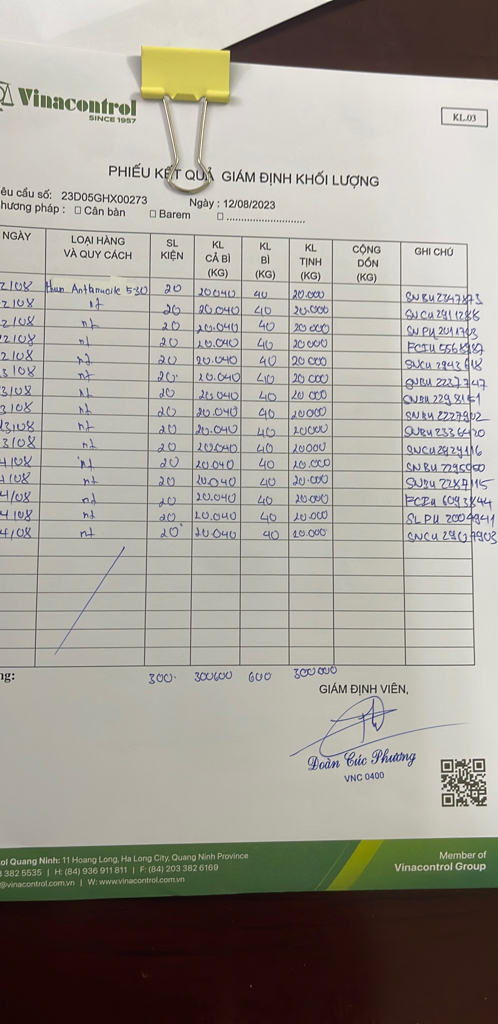 Vinacontrol
SINCE 1957
KL.03
PHIẾU KẾT QUẢ GIÁM ĐỊNH KHỐI LƯỢNG
êu cầu số: 23D05GHX00273 Ngày : 12/08/2023
hương pháp : □ Cân bàn □ Barem □ ............................
NGÀY LOẠI HÀNG VÀ QUY CÁCH SL KIỆN KL CẢ BÌ (KG) KL BÌ (KG) KL TỊNH (KG) CỘNG DỒN (KG) GHI CHÚ
2/08 530 20 20.040 40 20.000 SNBU 2347875
2/08 nt 20 20.040 40 20.000 SNCU 2911286
2/08 nt 20 20.040 40 20.000
2/08 nt 20 20.040 40 20.000
2/08 nt 20 20.040 40 20.000
3/08 nt 20 20.040 40 20.000 SNBU 2227747
3/08 nt 20 20.040 40 20.000
3/08 nt 20 20.040 40 20.000 SNBU 2227902
3/08 nt 20 20.040 40 20.000 SNBU 2336420
3/08 nt 20 20.040 40 20.000 SNCU 2929116
4/08 nt 20 20.040 40 20.000
4/08 nt 20 20.040 40 20.000 SNBU 2287115
4/08 nt 20 20.040 40 20.000 FCIU 6093844
4/08 nt 20 20.040 40 20.000 SLPU 2004941
4/08 nt 20 20.040 40 20.000 SNCU 2907903
ng: 300 300600 600 300000
GIÁM ĐỊNH VIÊN,
Đoàn Cúc Phương
VNC 0400
ol Quang Ninh: 11 Hoang Long, Ha Long City, Quang Ninh Province
3 382 5535 | H: (84) 936 911 811 | F: (84) 203 382 6169
@vinacontrol.com.vn | W: www.vinacontrol.com.vn
Member of
Vinacontrol Group